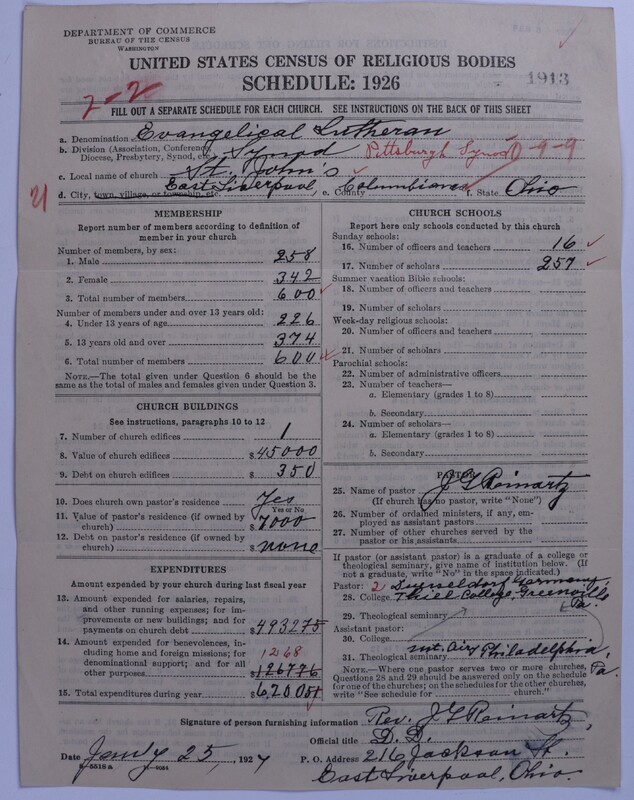 DEPARTMENT OF COMMERCE
BUREAU OF THE CENSUS
WASHINGTON
UNITED STATES CENSUS OF RELIGIOUS BODIES
SCHEDULE: 1926
1913
2-2
FILL OUT A SEPARATE SCHEDULE FOR EACH CHURCH. SEE INSTRUCTIONS ON THE BACK OF THIS SHEET
a. Denomination Evangelical Lutheran
b. Division (Association, Conference, Diocese, Presbytery, Synod, etc.) Synod Pittsburgh Synod 0-9-9
c. Local name of church St. John's
d. City, town, village, or township, etc. East Liverpool, e. County Columbiana f. State Ohio
MEMBERSHIP
Report number of members according to definition of
member in your church
Number of members, by sex:
1. Male 258
2. Female 342
3. Total number of members 600
Number of members under and over 13 years old:
4. Under 13 years of age 226
5. 13 years old and over 374
6. Total number of members 600
NOTE.—The total given under Question 6 should be
same as the total of males and females given under Question 3.
CHURCH BUILDINGS
See instructions, paragraphs 10 to 12
7. Number of church edifices 1
8. Value of church edifices $ 45000
9. Debt on church edifices $ 350
10. Does church own pastor's residence Yes
Yes or No
11. Value of pastor's residence (if owned by
church) $ 7000
12. Debt on pastor's residence (if owned by
church) $ none
EXPENDITURES
Amount expended by your church during last fiscal year
13. Amount expended for salaries, repairs,
and other running expenses; for im-
provements or new buildings; and for
payments on church debt 493275
14. Amount expended for benevolences, in-
cluding home and foreign missions; for
denominational support; and for all 1268
other purposes $ 126776
15. Total expenditures during year $ 620051
CHURCH SCHOOLS
Report here only schools conducted by this church
Sunday schools:
16. Number of officers and teachers 16
17. Number of scholars 257
Summer vacation Bible schools:
18. Number of officers and teachers
19. Number of scholars
Week-day religious schools:
20. Number of officers and teachers
21. Number of scholars
Parochial schools:
22. Number of administrative officers
23. Number of teachers—
a. Elementary (grades 1 to 8)
b. Secondary
24. Number of scholars—
a. Elementary (grades 1 to 8)
b. Secondary
PASTOR
25. Name of pastor J G Reinartz
(If church has no pastor, write "None")
26. Number of ordained ministers, if any, em-
ployed as assistant pastors
27. Number of other churches served by the
pastor or his assistants
If pastor (or assistant pastor) is a graduate of a college or
theological seminary, give name of institution below. (If
not a graduate, write "No" in the space indicated.)
Pastor: 2 Germany
28. College Thiel College, Greenville
Pa.
29. Theological seminary
Assistant pastor:
30. College
Mt. Airy Philadelphia,
31. Theological seminary Pa.
NOTE.—Where one pastor serves two or more churches,
Questions 28 and 29 should be answered only on the schedule
for one of the churches; on the schedules for the other churches,
write "See schedule for church."
Signature of person furnishing information Rev. J G Reinartz,
Official title D. D.
Date Jany 25, 1927 P. O. Address 216 Jackson St.
East Liverpool, Ohio.